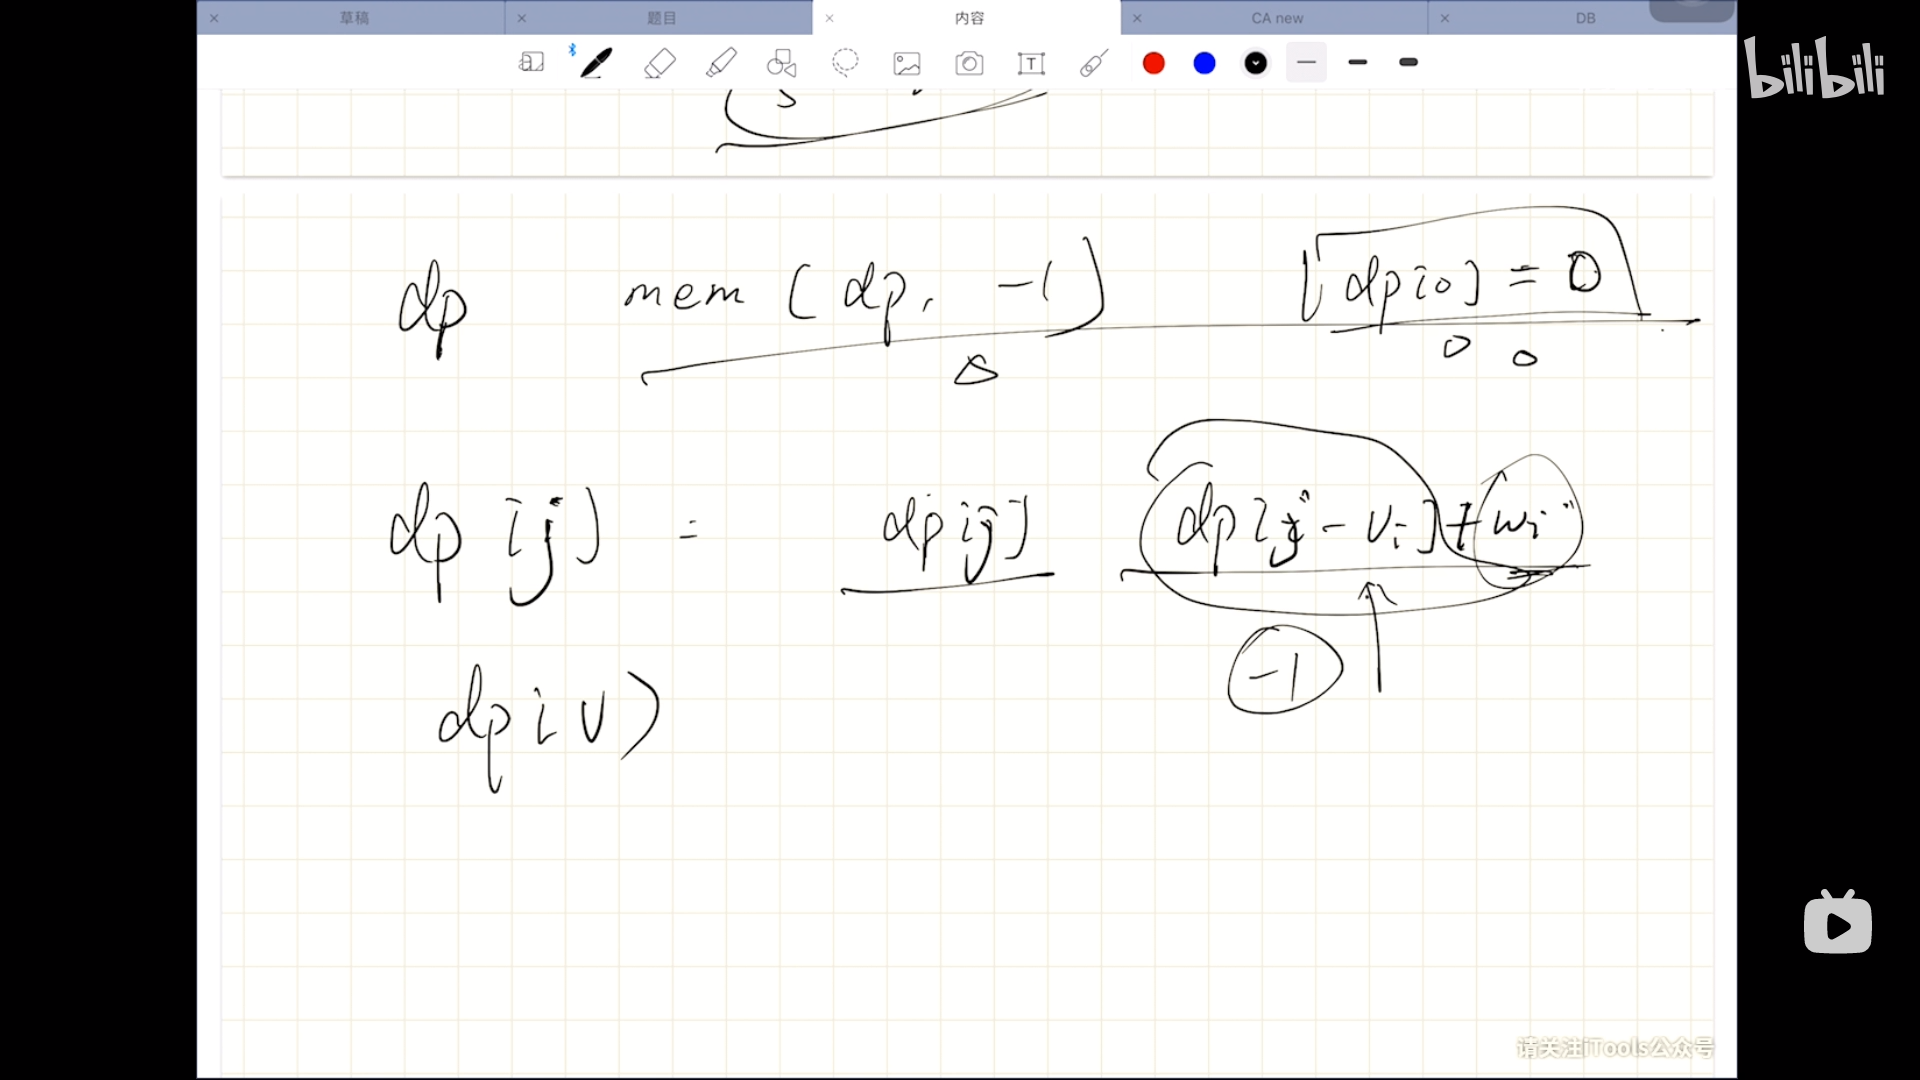 草稿 题目 内容 CA new DB
bilibili
T
dp mem(dp, -1) dp[0] = 0
dp[j] = dp[j] dp[j-vi]+wi
-1
dp[v]
请关注iTools公众号